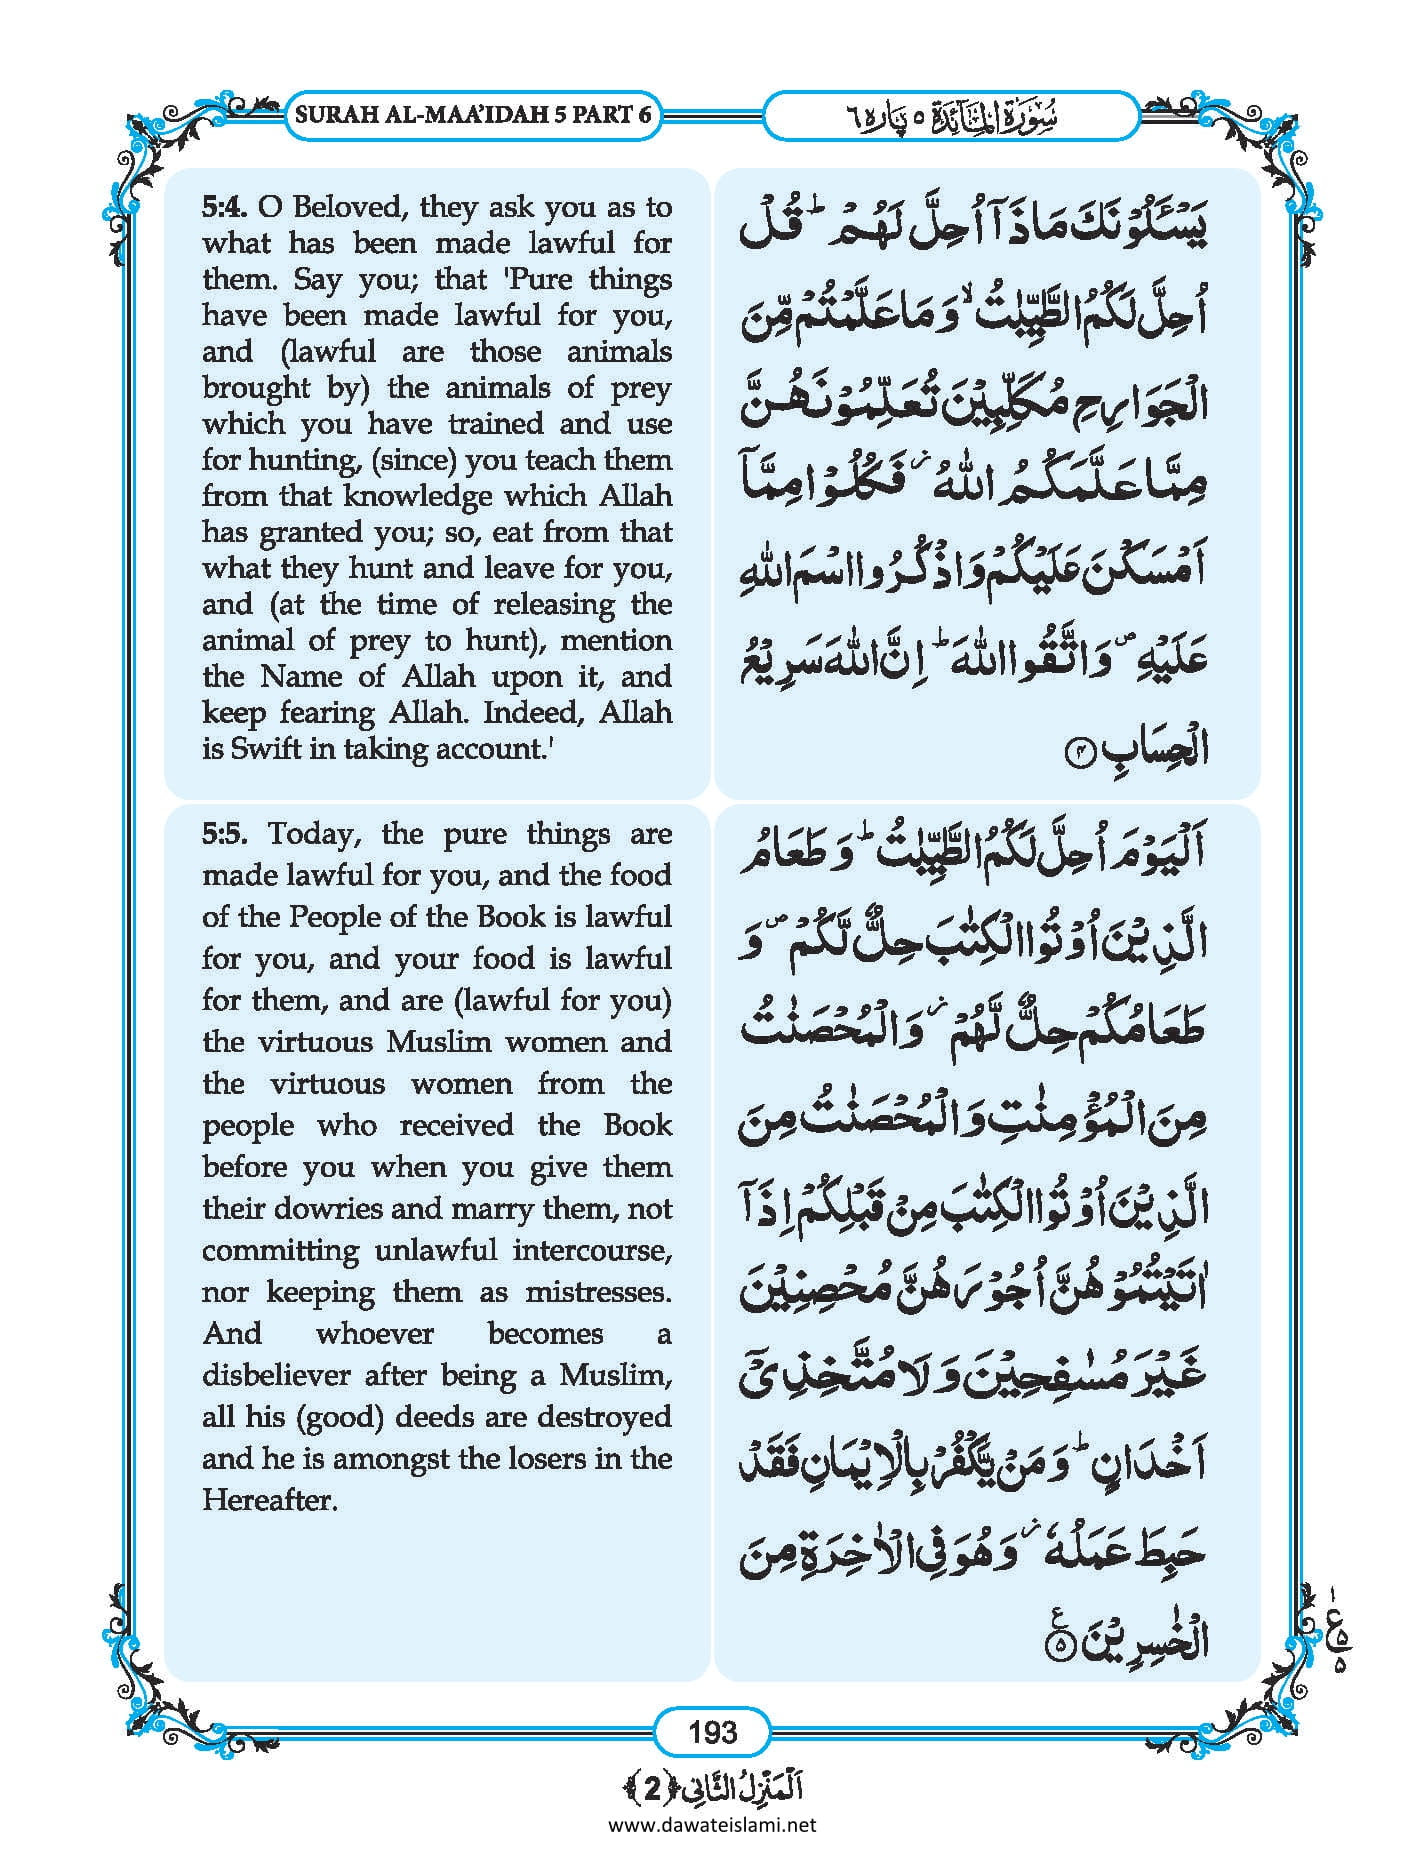 SURAH AL-MAA'IDAH 5 PART 6
سُوْرَةُ الْمَآئِدَة ٥ پاره ٦
5:4. O Beloved, they ask you as to
what has been made lawful for
them. Say you; that 'Pure things
have been made lawful for you,
and (lawful are those animals
brought by) the animals of prey
which you have trained and use
for hunting, (since) you teach them
from that knowledge which Allah
has granted you; so, eat from that
what they hunt and leave for you,
and (at the time of releasing the
animal of prey to hunt), mention
the Name of Allah upon it, and
keep fearing Allah. Indeed, Allah
is Swift in taking account.'
یَسْـَٔلُوْنَكَ مَا ذَاۤ اُحِلَّ لَهُمْؕ قُلْ
اُحِلَّ لَكُمُ الطَّیِّبٰتُۙ وَ مَا عَلَّمْتُمْ مِّنَ
الْجَوَارِحِ مُكَلِّبِیْنَ تُعَلِّمُوْنَهُنَّ
مِمَّا عَلَّمَكُمُ اللّٰهُ٘ فَكُلُوْا مِمَّاۤ
اَمْسَكْنَ عَلَیْكُمْ وَ اذْكُرُوا اسْمَ اللّٰهِ
عَلَیْهِ۪ وَ اتَّقُوا اللّٰهَؕ اِنَّ اللّٰهَ سَرِیْعُ
الْحِسَابِ ۴
5:5. Today, the pure things are
made lawful for you, and the food
of the People of the Book is lawful
for you, and your food is lawful
for them, and are (lawful for you)
the virtuous Muslim women and
the virtuous women from the
people who received the Book
before you when you give them
their dowries and marry them, not
committing unlawful intercourse,
nor keeping them as mistresses.
And whoever becomes a
disbeliever after being a Muslim,
all his (good) deeds are destroyed
and he is amongst the losers in the
Hereafter.
اَلْیَوْمَ اُحِلَّ لَكُمُ الطَّیِّبٰتُؕ وَ طَعَامُ
الَّذِیْنَ اُوْتُوا الْكِتٰبَ حِلٌّ لَّكُمْ۪ وَ
طَعَامُكُمْ حِلٌّ لَّهُمْ٘ وَ الْمُحْصَنٰتُ
مِنَ الْمُؤْمِنٰتِ وَ الْمُحْصَنٰتُ مِنَ
الَّذِیْنَ اُوْتُوا الْكِتٰبَ مِنْ قَبْلِكُمْ اِذَاۤ
اٰتَیْتُمُوْهُنَّ اُجُوْرَهُنَّ مُحْصِنِیْنَ
غَیْرَ مُسٰفِحِیْنَ وَ لَا مُتَّخِذِیْۤ
اَخْدَانٍؕ وَ مَنْ یَّكْفُرْ بِالْاِیْمَانِ فَقَدْ
حَبِطَ عَمَلُهٗ٘ وَ هُوَ فِی الْاٰخِرَةِ مِنَ
الْخٰسِرِیْنَ ۵ ع
۱
ع ۵
۵
193
اَلْمَنْزِلُ الثَّانِی ﴿2﴾
www.dawateislami.net